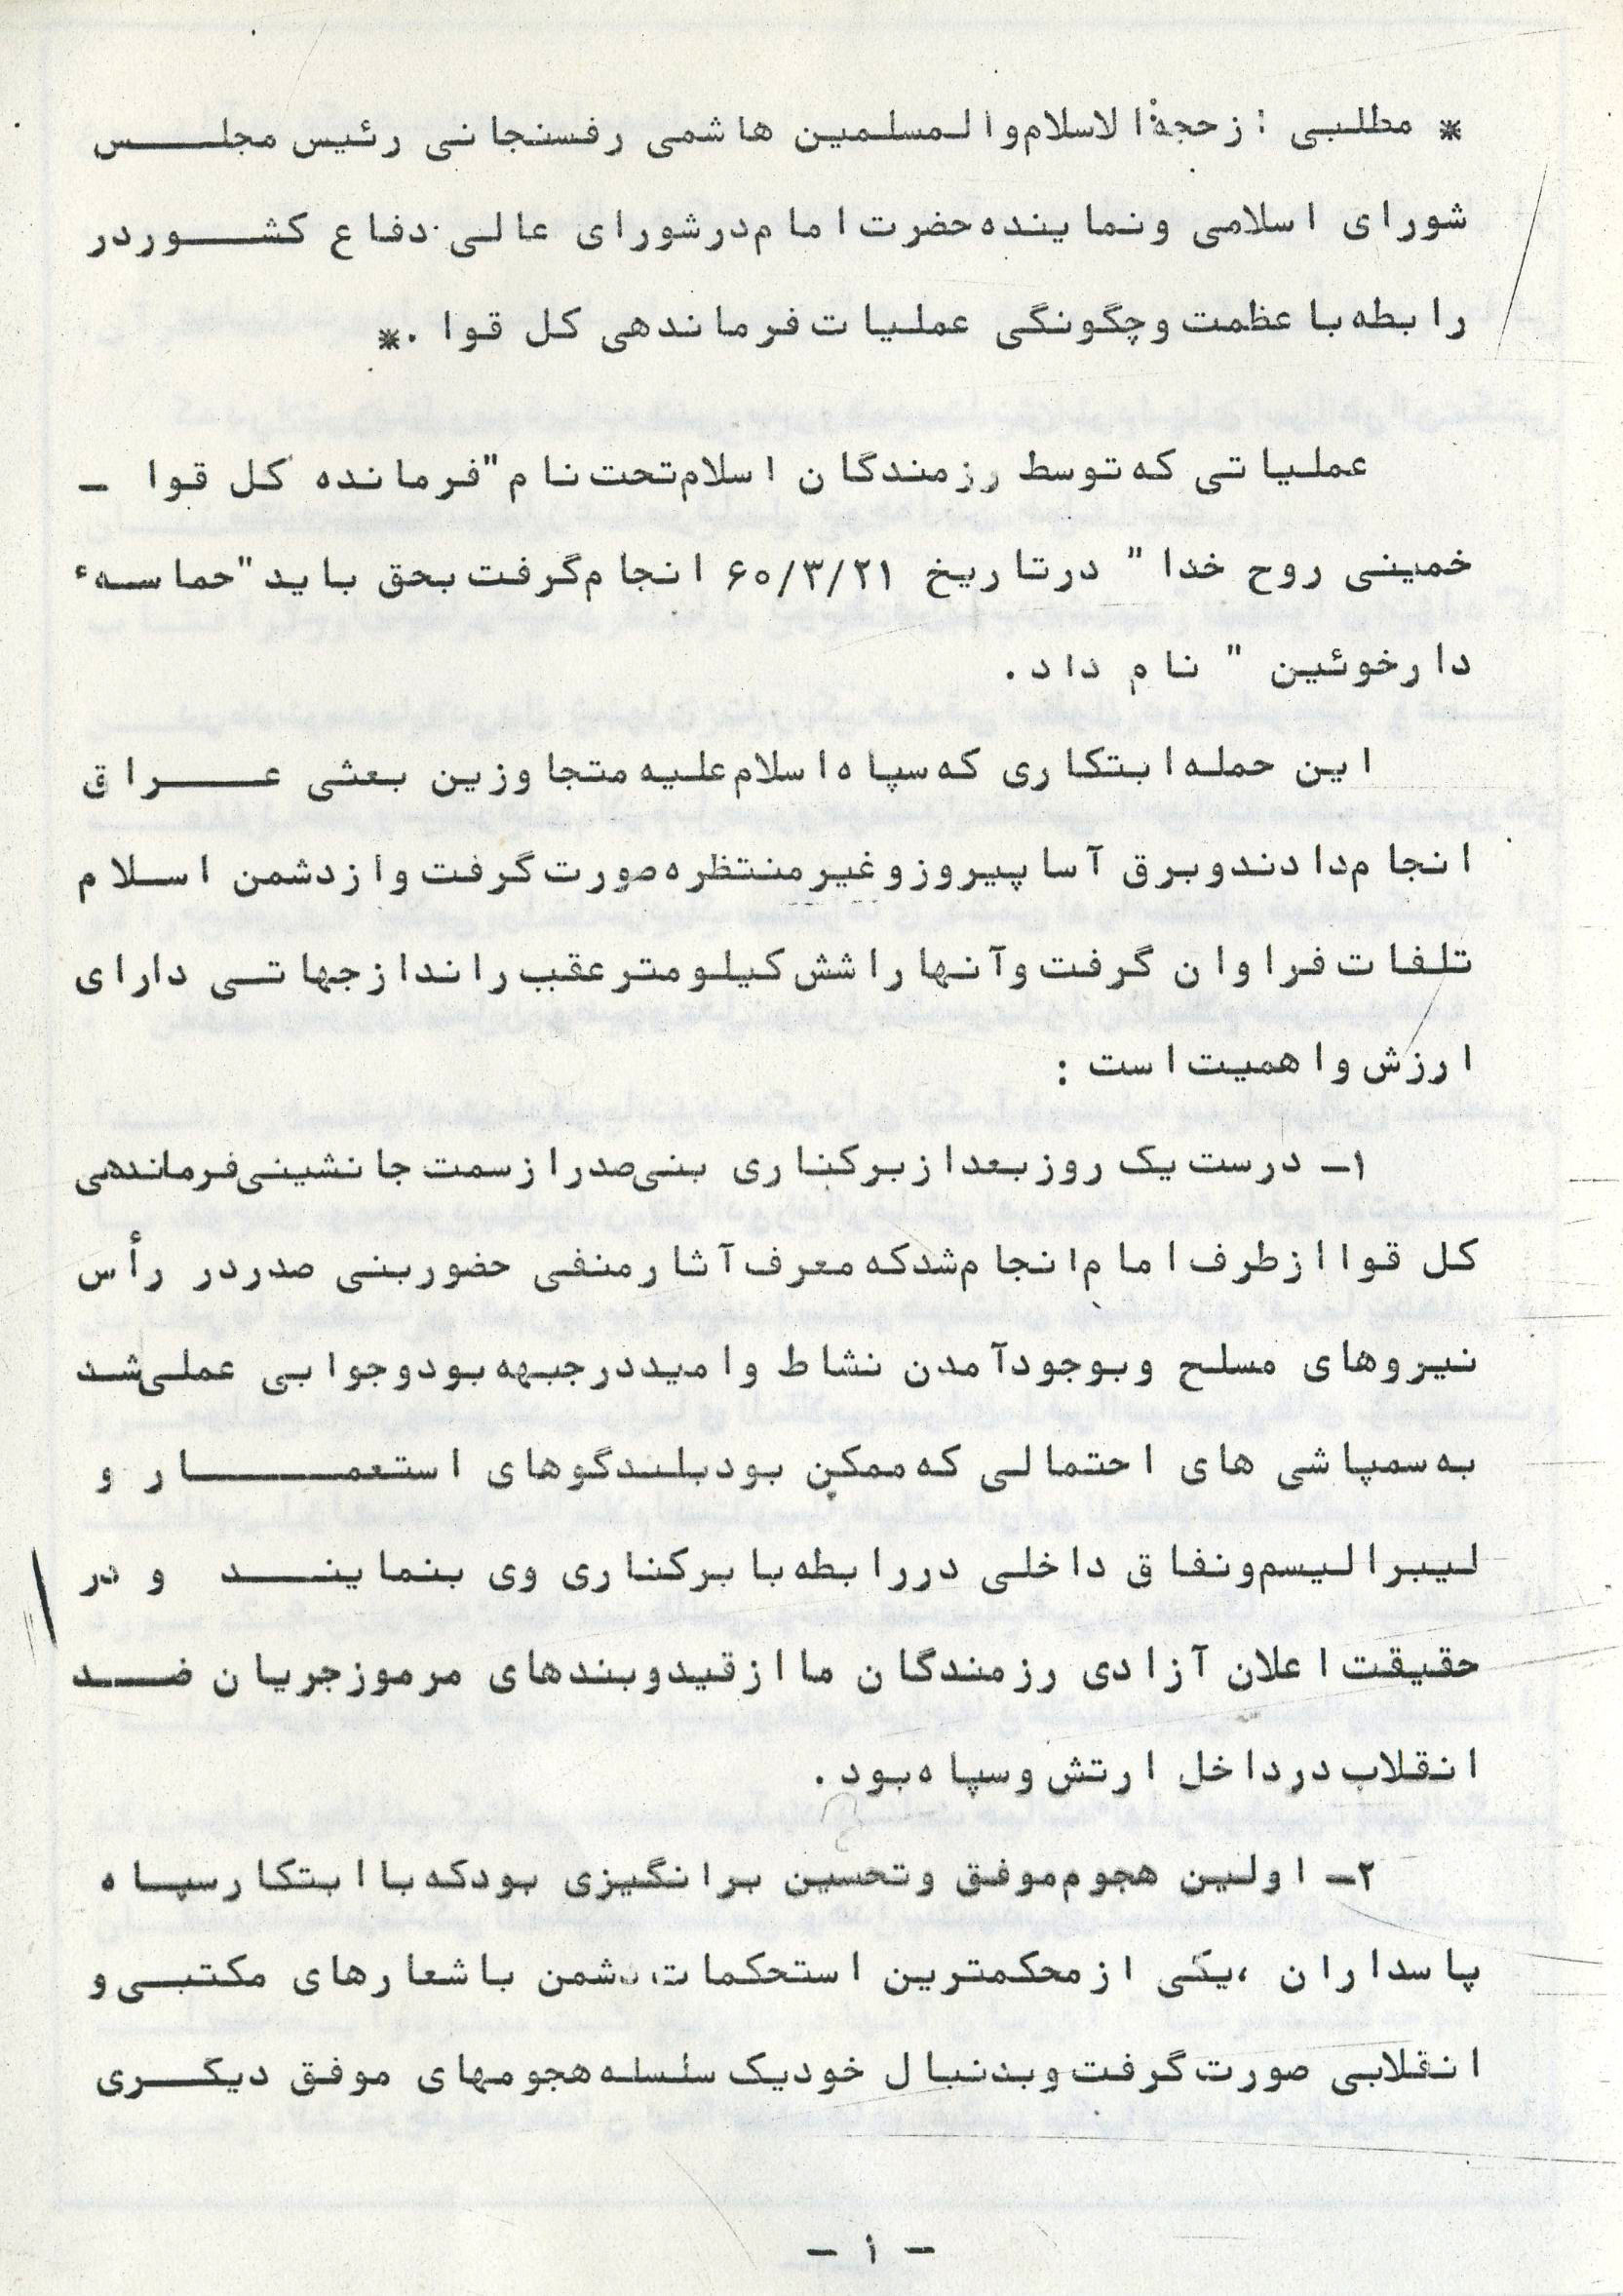 * مطلبی از حجة الاسلام والمسلمین هاشمی رفسنجانی رئیس مجلس
شورای اسلامی ونماینده حضرت امام درشورای عالی دفاع کشوردر
رابطه با عظمت وچگونگی عملیات فرماندهی کل قوا .*
عملیاتی که توسط رزمندگان اسلام تحت نام "فرمانده کل قوا -
خمینی روح خدا " درتاریخ ۶۰/۳/۲۱ انجام گرفت بحق باید "حماسهء
دارخوئین " نام داد .
این حمله ابتکاری که سپاه اسلام علیه متجاوزین بعثی عراق
انجام دادند وبرق آسا پیروز و غیرمنتظره صورت گرفت واز دشمن اسلام
تلفات فراوان گرفت وآنها را شش کیلومتر عقب راند از جهاتی دارای
ارزش واهمیت است :
۱- درست یک روز بعد از برکناری بنی صدر از سمت جانشینی فرماندهی
کل قوا از طرف امام انجام شد که معرف آثار منفی حضور بنی صدر در رأس
نیروهای مسلح وبوجود آمدن نشاط وامید در جبهه بود وجوابی عملی شد
به سمپاشی های احتمالی که ممکن بود بلندگوهای استعمار و
لیبرالیسم ونفاق داخلی در رابطه با برکناری وی بنمایند و در
حقیقت اعلان آزادی رزمندگان ما از قید وبندهای مرموز جریان ضد
انقلاب در داخل ارتش وسپاه بود .
۲- اولین هجوم موفق وتحسین برانگیزی بود که با ابتکار سپاه
پاسداران ،یکی از محکمترین استحکامات دشمن با شعارهای مکتبی و
انقلابی صورت گرفت وبدنبال خود یک سلسله هجومهای موفق دیگری
- ۱ -